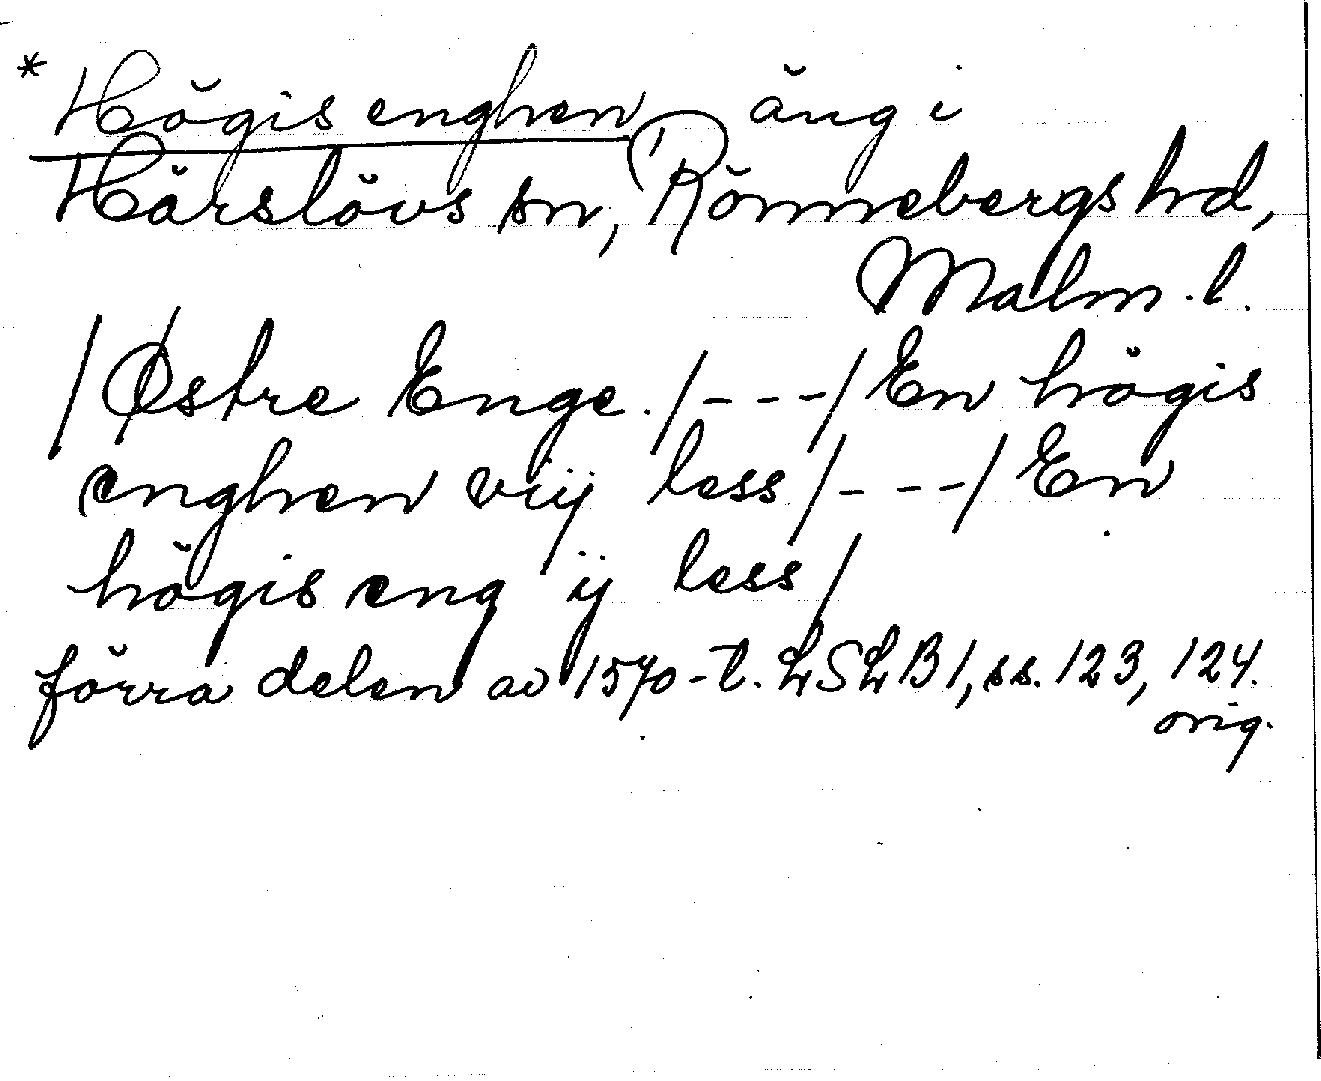 * Högis enghen äng i
Härslövs sn, Rönnebergs hd,
Malm. l.
/Østre Enge./---/En högis
enghen vij less/---/En
högis eng ij less/
förra delen av 1570-t. LSLB1, ss. 123, 124.
orig.